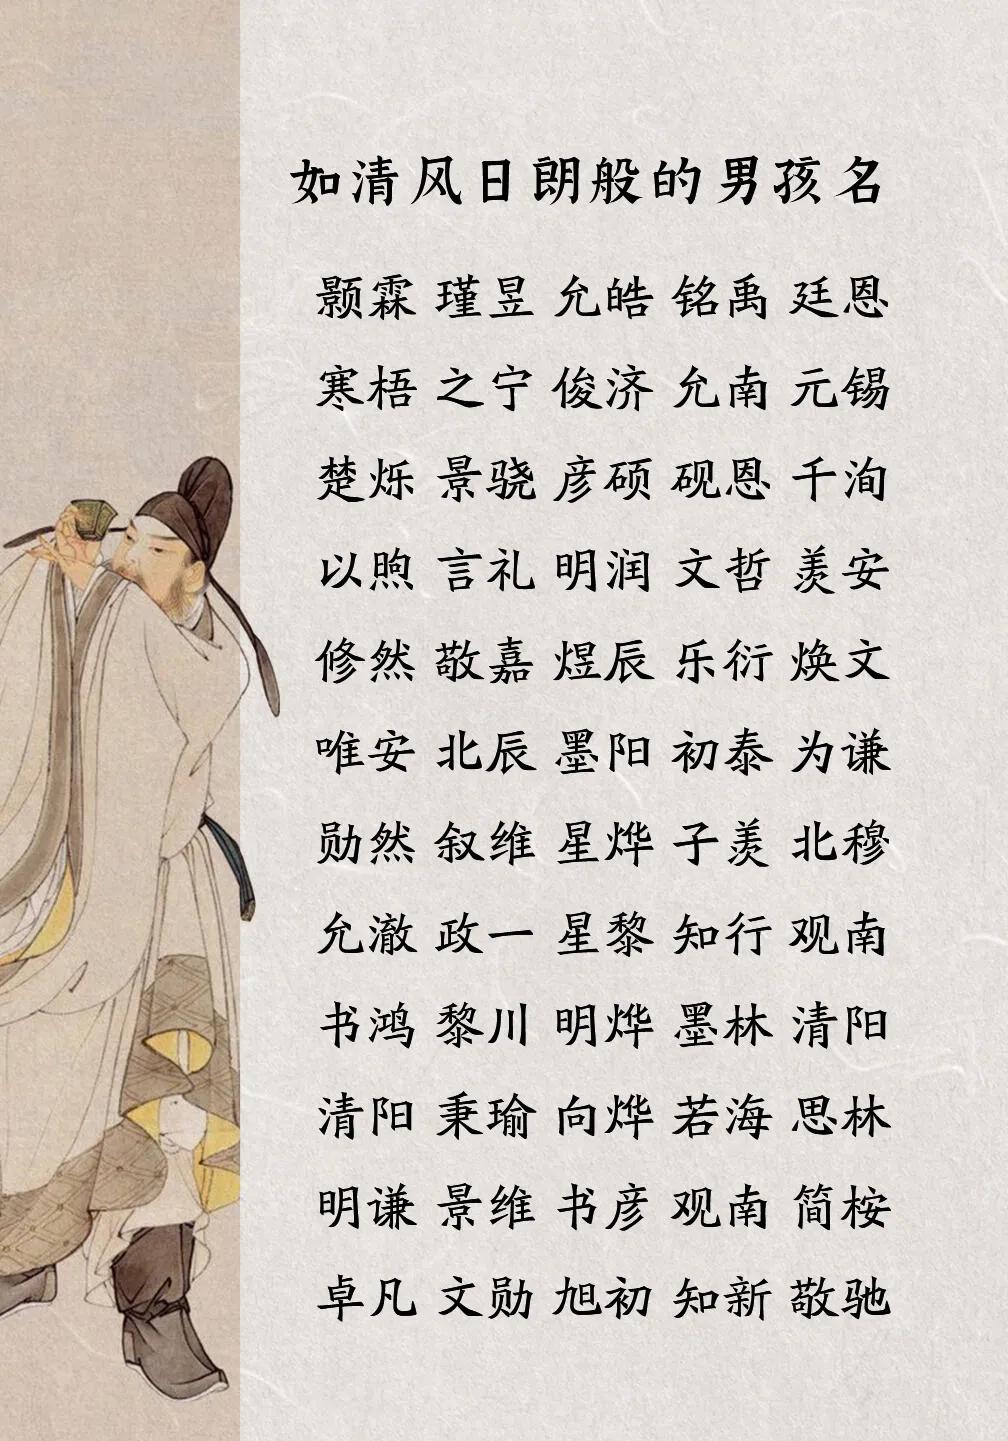 如清风日朗般的男孩名
颢霖 瑾昱 允皓 铭禹 廷恩
寒梧 之宁 俊济 允南 元锡
楚烁 景骁 彦硕 砚恩 千洵
以煦 言礼 明润 文哲 羡安
修然 敬嘉 煜辰 乐衍 焕文
唯安 北辰 墨阳 初泰 为谦
勋然 叙维 星烨 子羡 北穆
允澈 政一 星黎 知行 观南
书鸿 黎川 明烨 墨林 清阳
清阳 秉瑜 向烨 若海 思林
明谦 景维 书彦 观南 简桉
卓凡 文勋 旭初 知新 敬驰